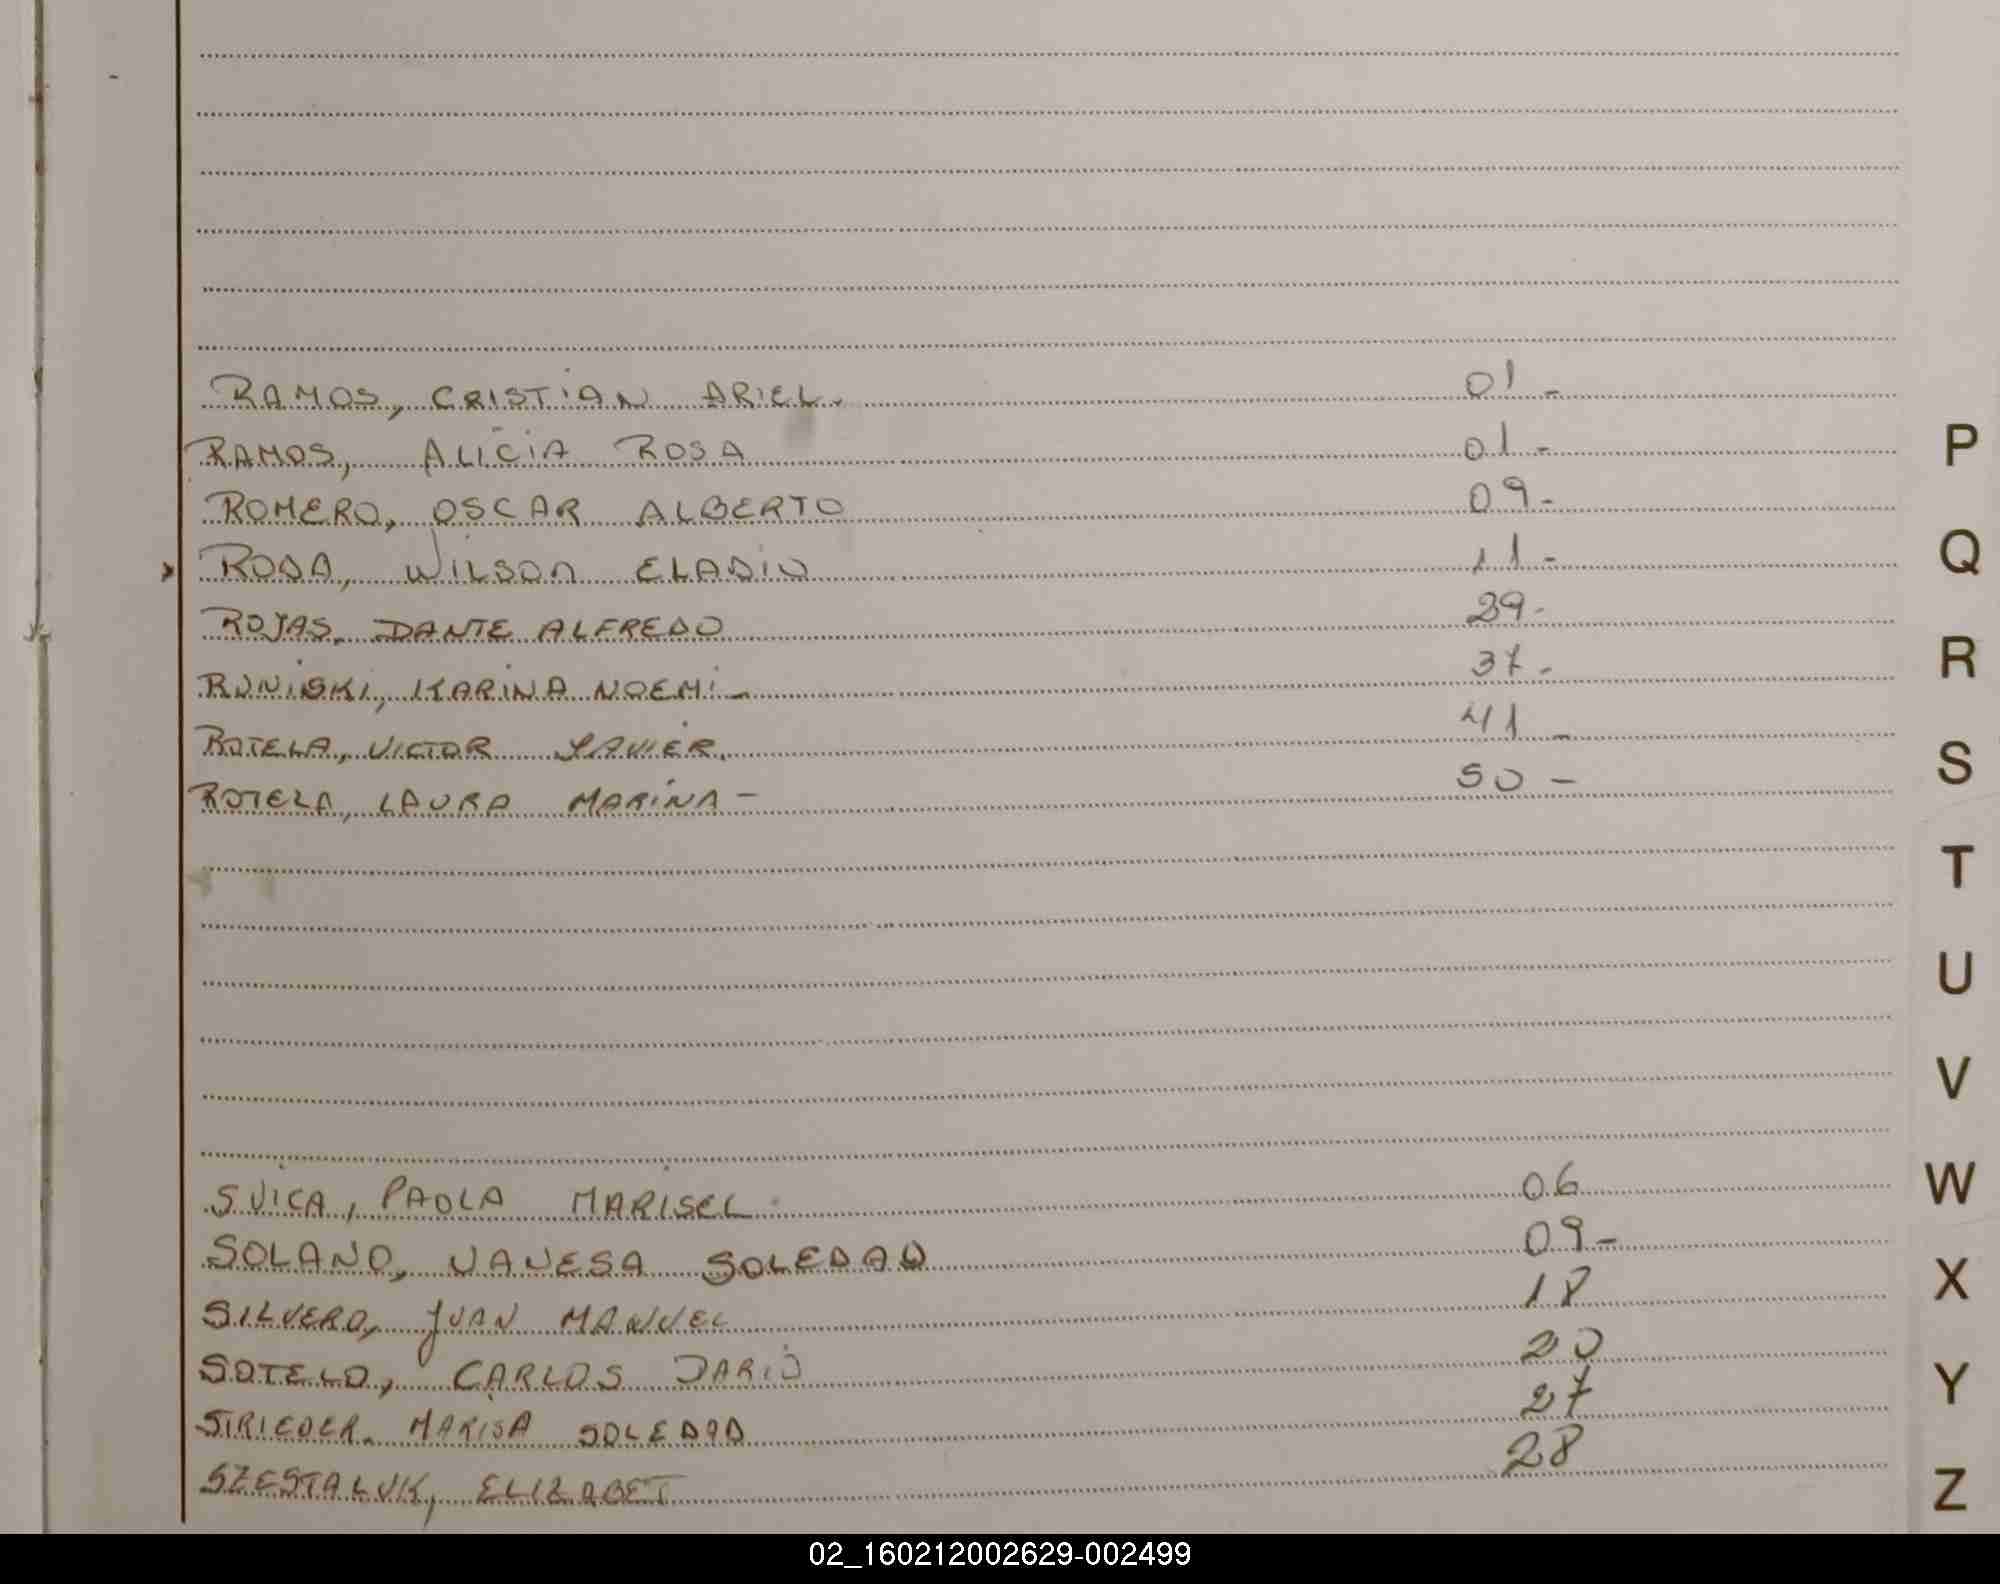 RAMOS, CRISTIAN ARIEL. 01 -
RAMOS, ALICIA ROSA 01 -
ROMERO, OSCAR ALBERTO 09 -
RODA, WILSON ELADIO 11 -
ROJAS. DANTE ALFREDO 29 -
RUNISKI, KARINA NOEMI - 37 -
ROTELA, VICTOR JAVIER. 41 -
ROTELA, LAURA MARINA - 50 -
SUICA, PAOLA MARISEL 06
SOLANO, VANESA SOLEDAD 09 -
SILVERO, JUAN MANUEL 18
SOTELO, CARLOS DARIO 20
STRIEDER. MARISA SOLEDAD 27
SZESTALUK, ELIZABET 28
P
Q
R
S
T
U
V
W
X
Y
Z
02_160212002629-002499